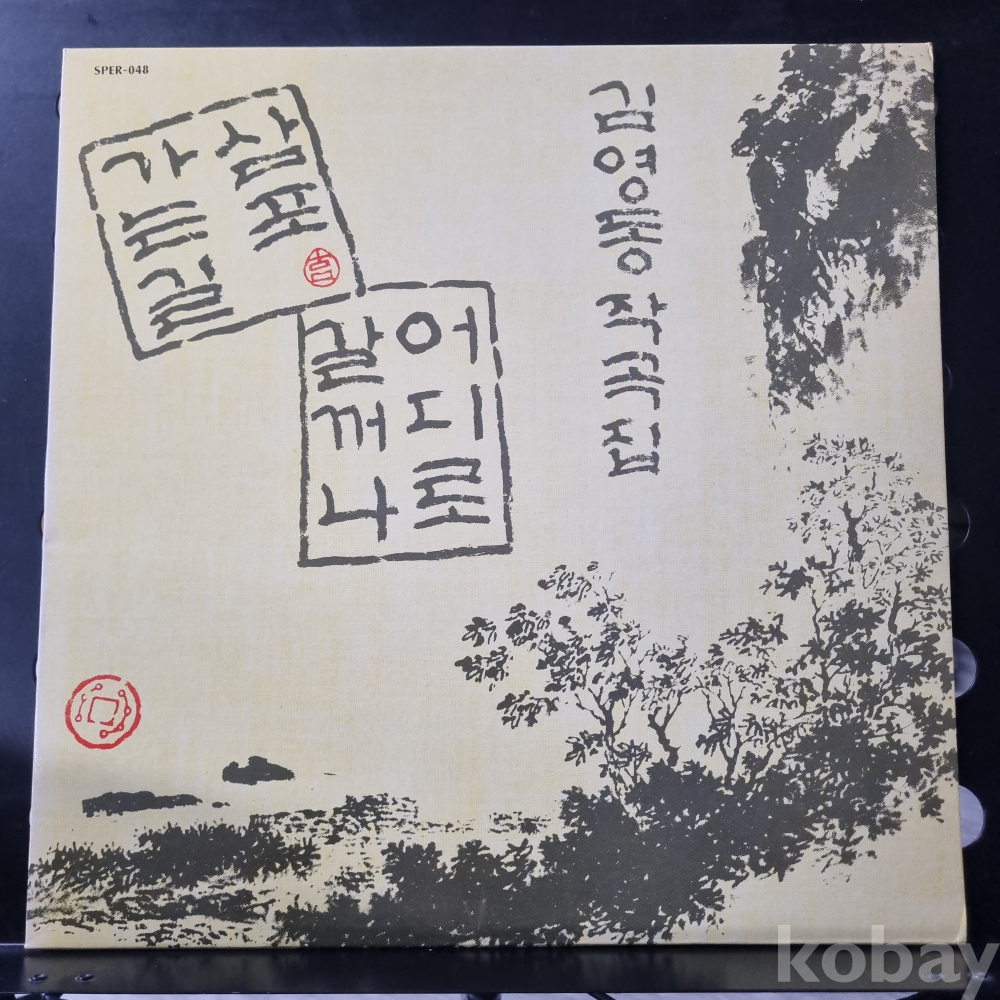 SPER-048
삼포
가는길
어디로
갈꺼나
김영동 작곡집
kobay